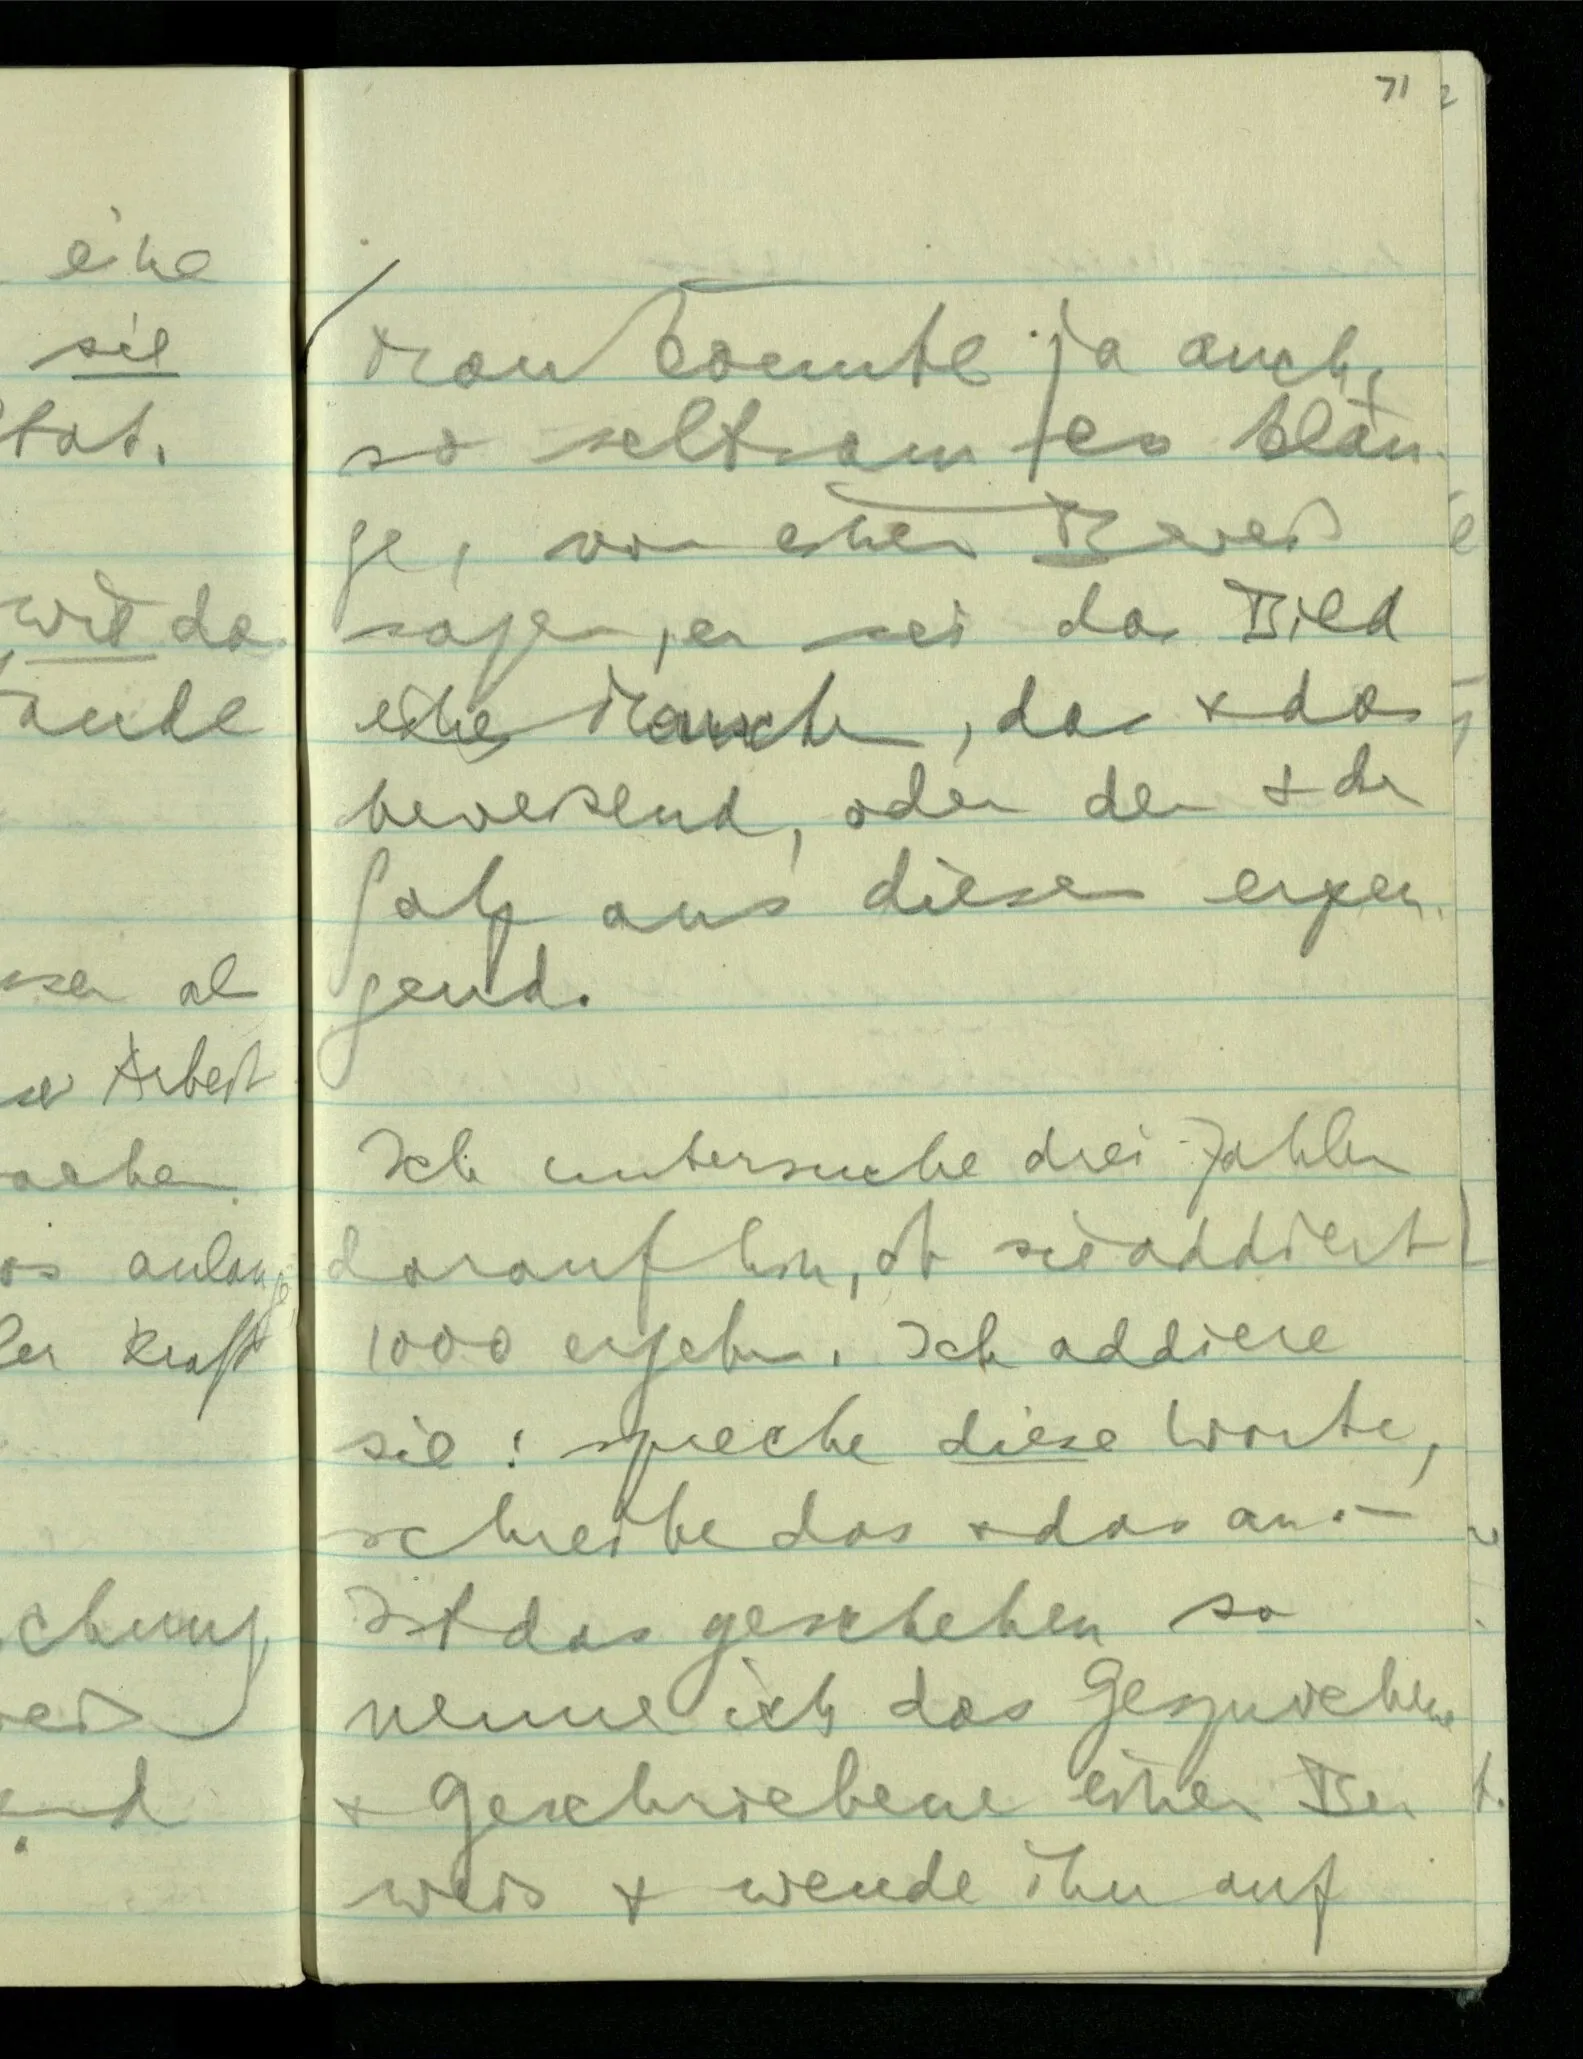 eine
sie
tat.
wird da
ande
sser al
se Arbeit
machen.
as anlange,
der Kraft
chung
weis
end
71
Man könnte ja auch,
so seltsam es klän-
ge, von einem Beweis
sagen, er sei das Bild
eines Menschen, das & das
beweisend, oder den & den
Satz aus diesem erzeu-
gend.
Ich untersuche drei Zahlen
darauf hin, ob sie addiert
1000 ergeben. Ich addiere
sie: spreche diese Worte,
schreibe das & das an. –
Ist das geschehen so
nenne ich das Gesprochene
& Geschriebene einen Be-
weis & wende ihn auf